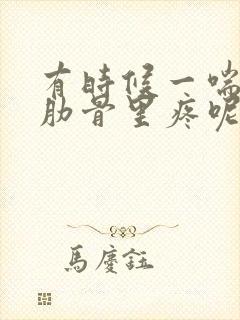 有時候一喘
肋骨里疼呢
馬慶鈺